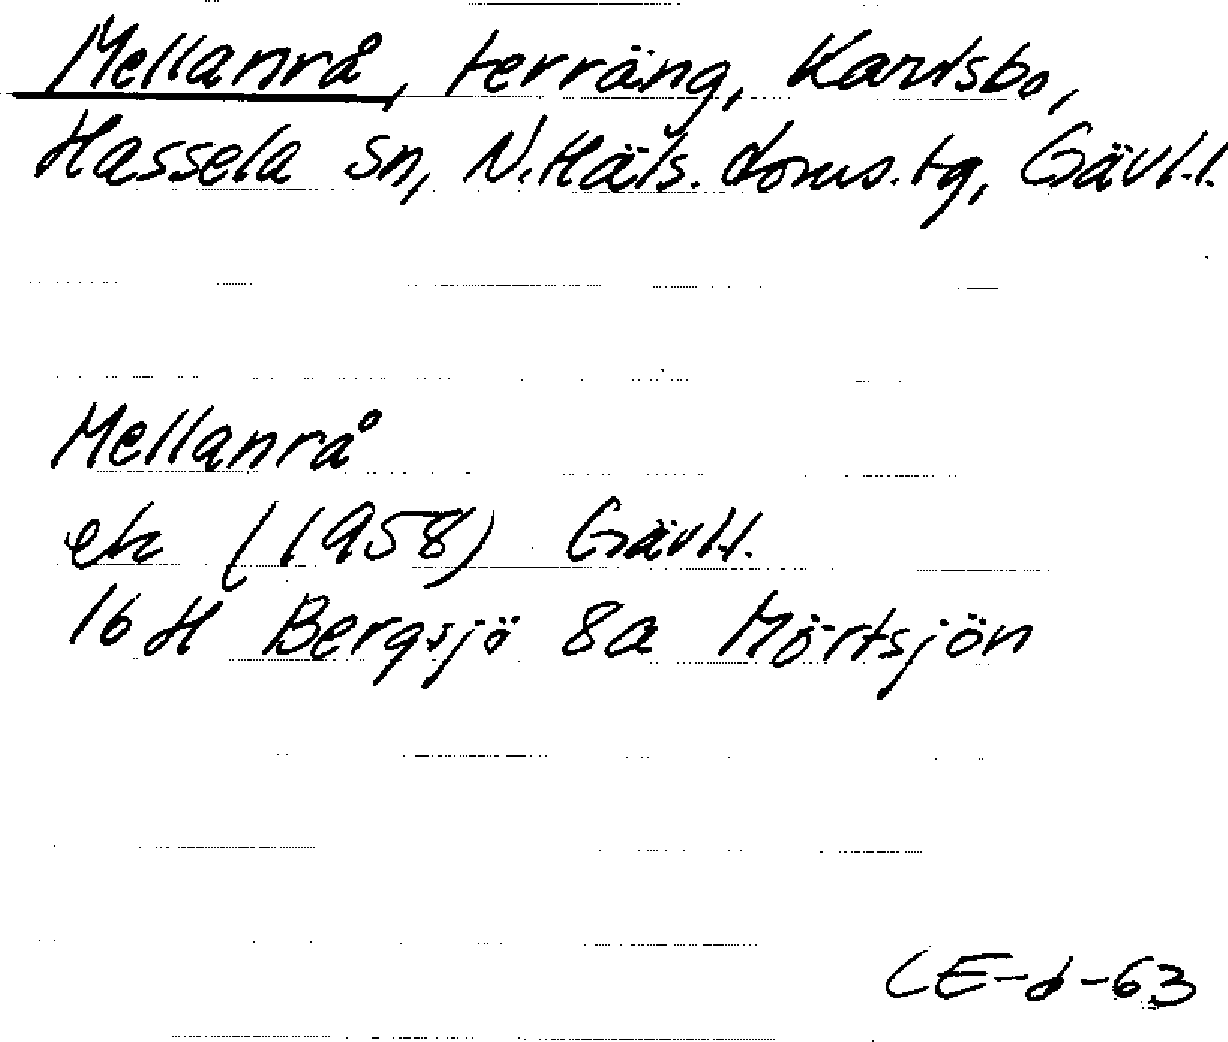 Mellanrå, terräng, Karlsbo,
Hassela sn, N.Häls. doms.tg, Gävl.l.
Mellanrå
ek (1958) Gävl.l.
16 H Bergsjö 8a Mörtsjön
CE-d-63